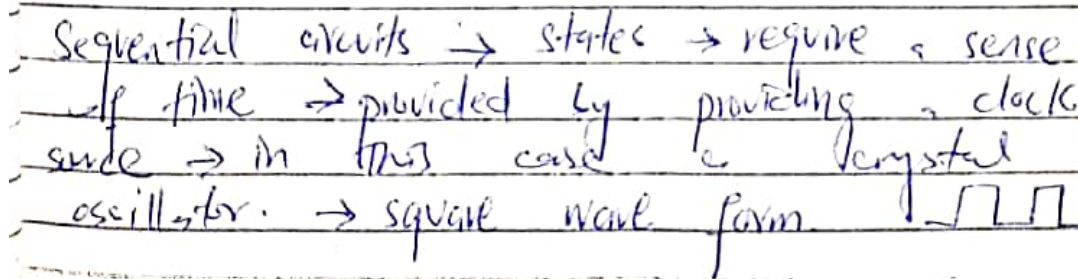 Sequential circuits → states → require a sense
of time → provided by providing a clock
→ in this case a crystal
oscillator. → square wave form